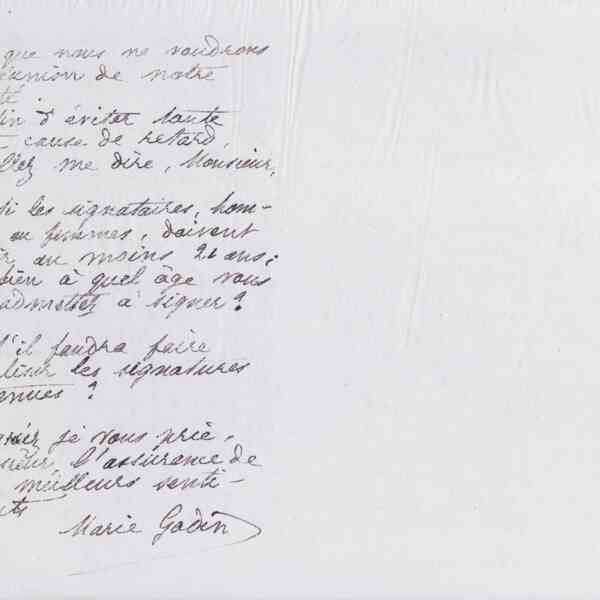 que nous ne voudrons
éunion de notre
té.
in d'éviter toute
cause de retard,
llez me dire, Monsieur,
si les signataires, hom-
ou femmes, doivent
ir au moins 21 ans;
bien à quel âge vous
admettez à signer?
s'il faudra faire
liser les signatures
enues?
je vous prie,
sieur, l'assurance de
meilleurs senti-
nts
Marie Godin